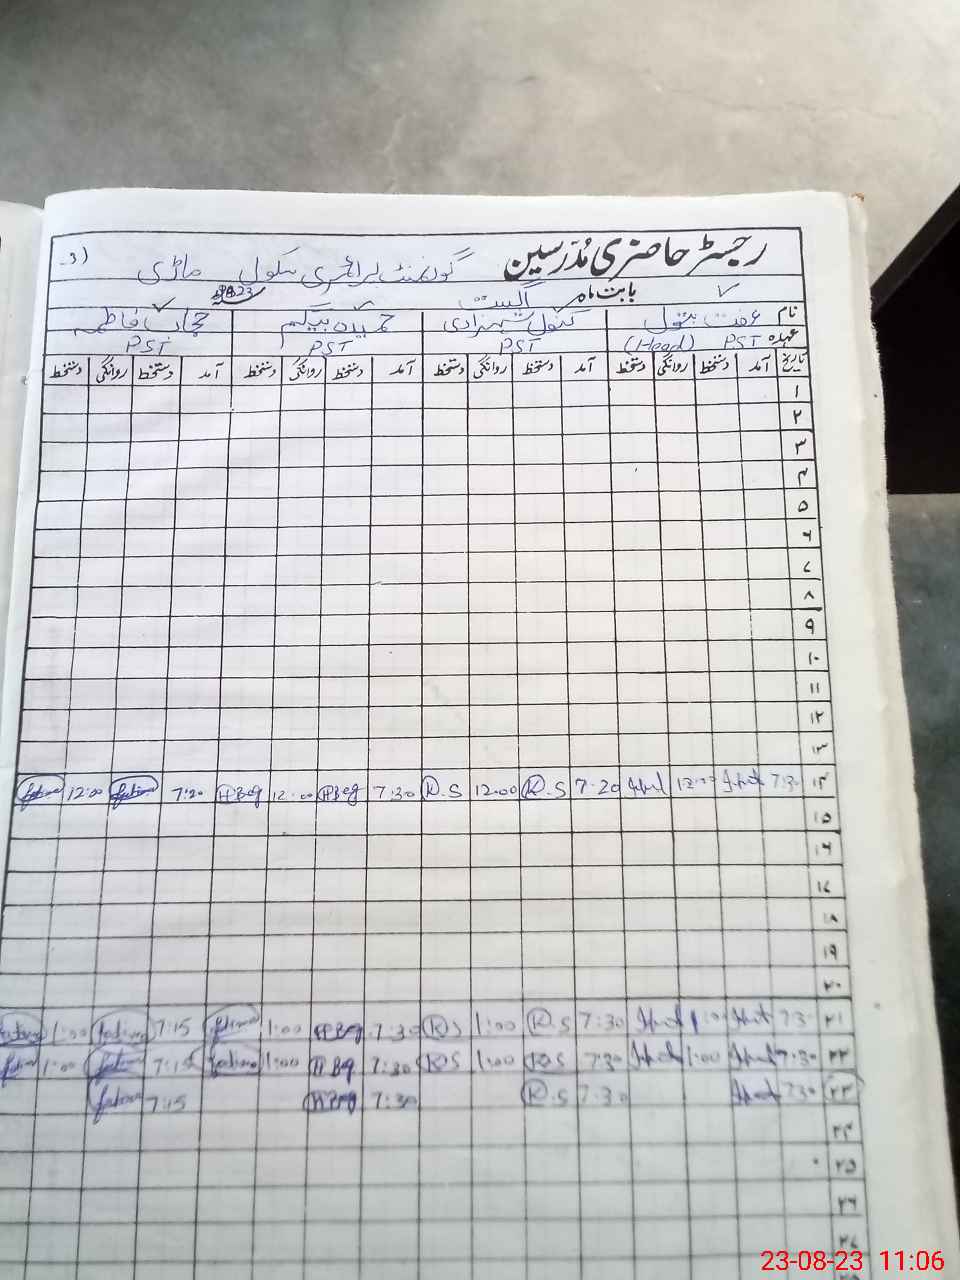 رجسٹر حاضری مُدرسین گورنمنٹ پرائمری سکول ماڑی
بابت ماہ اگست 2023
نام عفت بتول کنول شہزادی حمیدہ بیگم حجاب فاطمہ
عہدہ PST (Head) PST PST PST
تاریخ آمد دستخط روانگی دستخط آمد دستخط روانگی دستخط آمد دستخط روانگی دستخط آمد دستخط روانگی دستخط
۱
۲
۳
۴
۵
۶
۷
۸
۹
۱۰
۱۱
۱۲
۱۳
۱۴ 7:30 7:20 K.S 12:00 K.S 7:30 HBeg 12:00 HBeg 7:20 fatima 12:00 fatima
۱۵
۱۶
۱۷
۱۸
۱۹
۲۰
۲۱ 7:30 1:00 7:30 K.S 1:00 K.S 7:30 HBeg 1:00 fatima 7:15 fatima 1:00 fatima
۲۲ 7:30 1:00 7:30 K.S 1:00 K.S 7:30 HBeg 1:00 fatima 7:15 fatima 1:00 fatima
۲۳ 7:30 7:30 K.S 7:30 HBeg 7:15 fatima
۲۴
۲۵
۲۶
۲۷
23-08-23 11:06